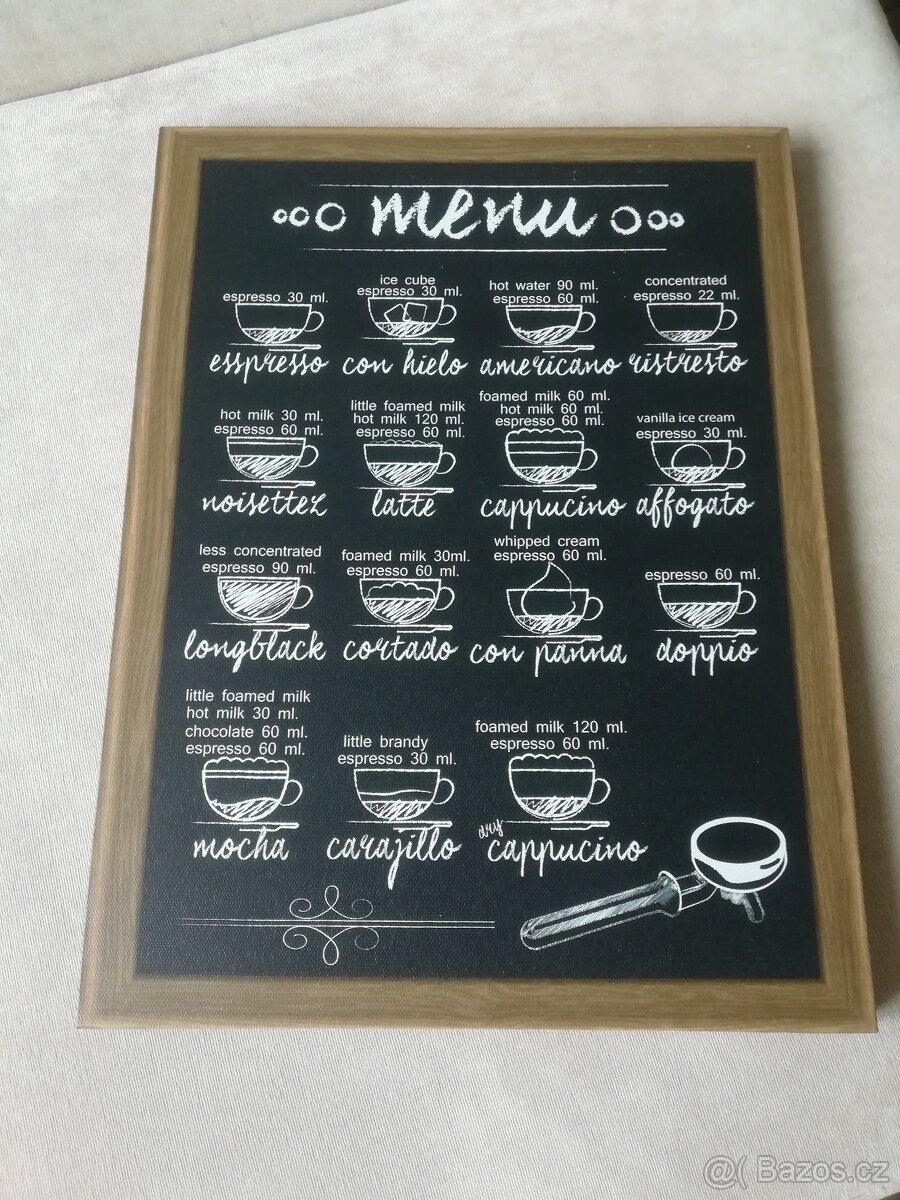 menu
espresso 30 ml.
esspresso
ice cube
espresso 30 ml.
con hielo
hot water 90 ml.
espresso 60 ml.
americano
concentrated
espresso 22 ml.
ristresto
hot milk 30 ml.
espresso 60 ml.
noisettez
little foamed milk
hot milk 120 ml.
espresso 60 ml.
latte
foamed milk 60 ml.
hot milk 60 ml.
espresso 60 ml.
cappucino
vanilla ice cream
espresso 30 ml.
affogato
less concentrated
espresso 90 ml.
longblack
foamed milk 30ml.
espresso 60 ml.
cortado
whipped cream
espresso 60 ml.
con panna
espresso 60 ml.
doppio
little foamed milk
hot milk 30 ml.
chocolate 60 ml.
espresso 60 ml.
mocha
little brandy
espresso 30 ml.
carajillo
foamed milk 120 ml.
espresso 60 ml.
dry
cappucino
@( Bazos.cz